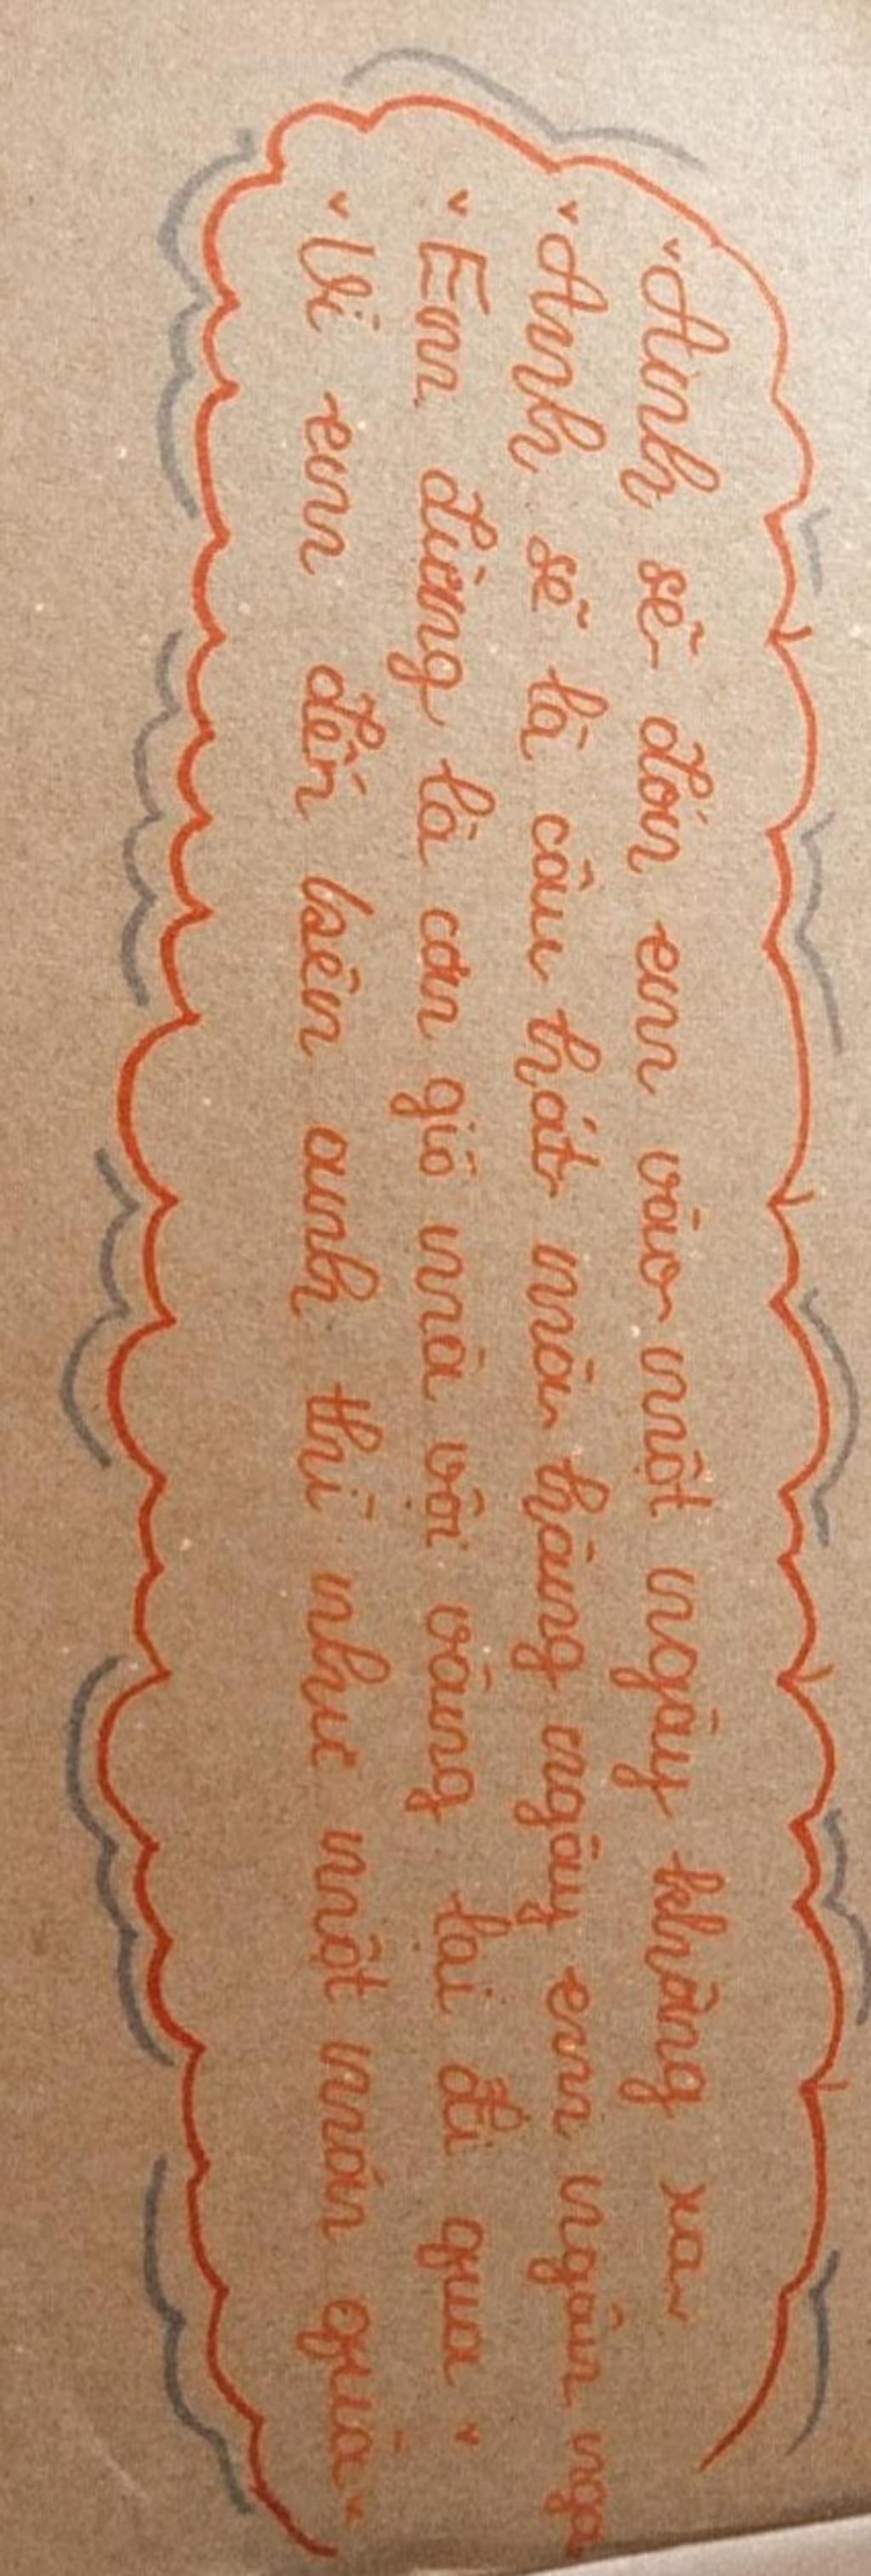 "Anh sẽ đón em vào một ngày không xa
"Anh sẽ là câu hát mà hàng ngày em ngân nga
"Em đừng là cơn gió mà vội vàng lại đi qua"
"Vì em đến bên anh thì như một món quà"